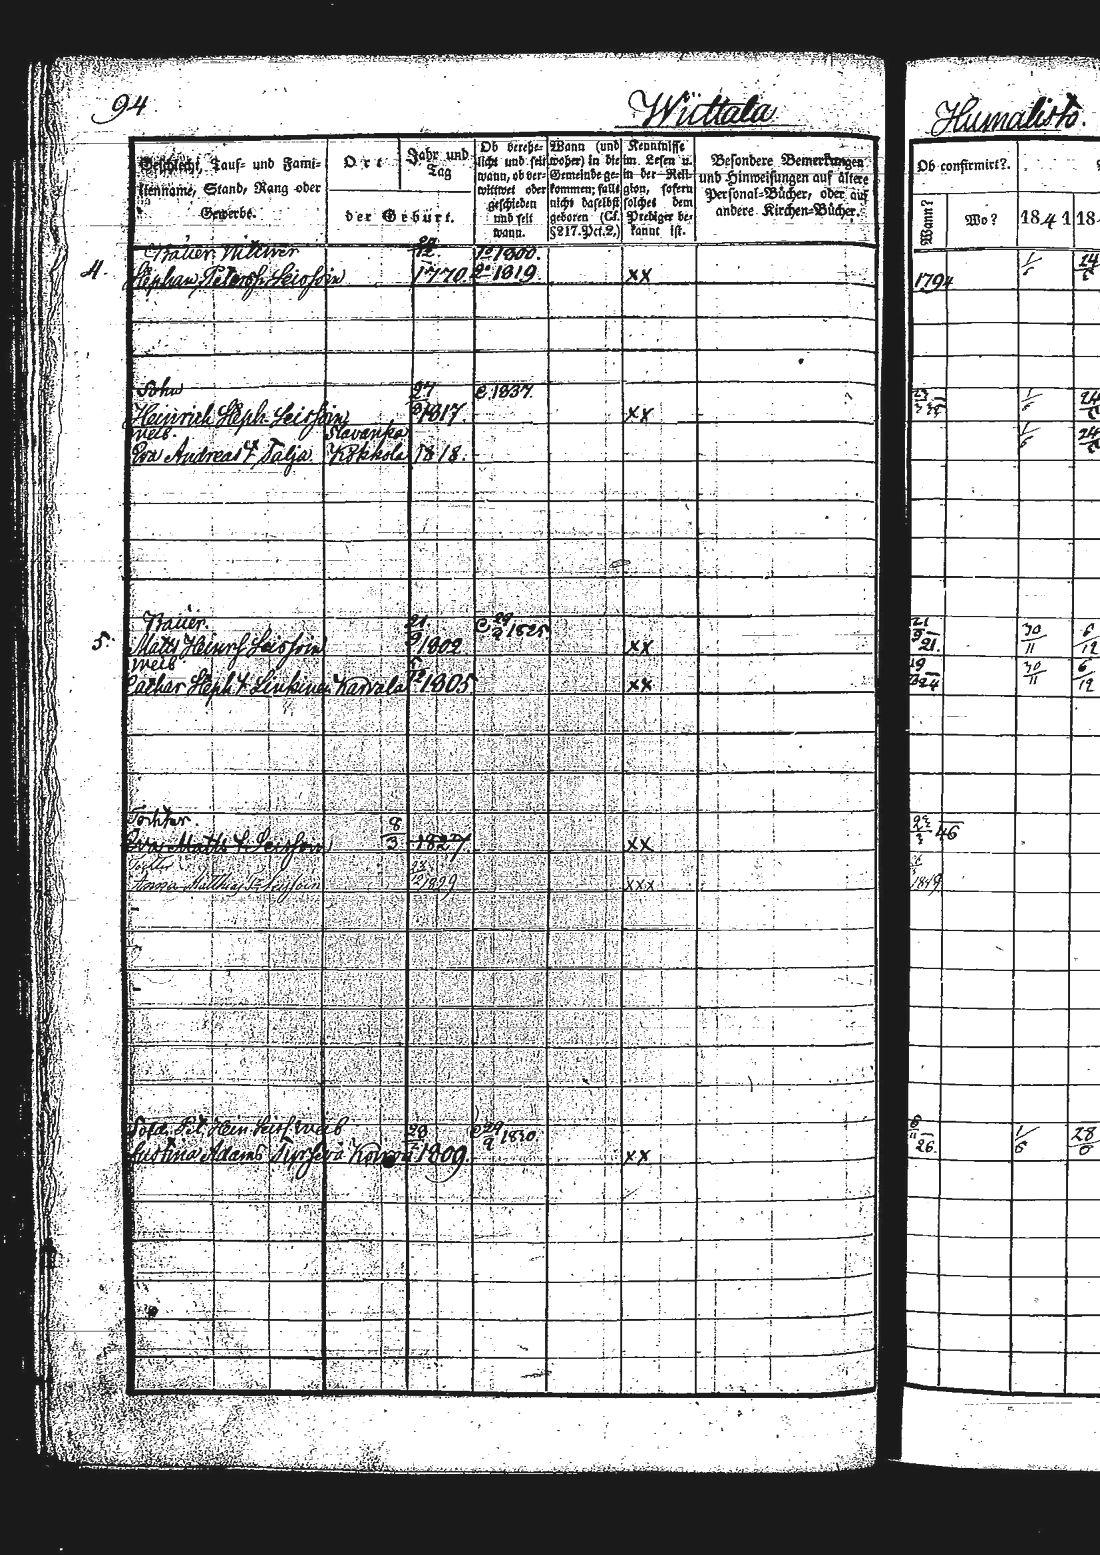 94
Wüttala
Humalisto.
Geschlecht, Tauf- und Fami-
lienname, Stand, Rang oder
Gewerbe.
Ort
Jahr und
Tag
der Geburt.
Ob verehe-
licht und seit
wann, ob ver-
wittwet oder
geschieden
und seit
wann.
Wann (und
woher) in die
Gemeinde ge-
kommen; falls
nicht daselbst
geboren (Cf.
§217.Pct.2.)
Kenntnisse
im Lesen u.
in der Reli-
gion, sofern
solches dem
Prediger be-
kannt ist.
Besondere Bemerkungen
und Hinweisungen auf ältere
Personal-Bücher, oder auf
andere Kirchen-Bücher.
Ob confirmirt?.
Wann?
Wo?
1841
18
Bauer. Wittwer
4. Stephan Petersf. Seissoin 1770. 1° 1800. 2° 1819. xx 1794
Sohn 27 C. 1837.
Heinrich Steph. Seissoin 1817. xx 1/6 24
Weib. Slavanka 1/6 24
Eva Andreas Talja Kokkola 1818.
Bauer. 21 C 29 1825
5. Matts Heinrf Seissoin 1802. xx 21. 30/11 6/12
Weib
Cathar Steph Linkinen Karvala 1805 xx 24 30/11 6/12
Tochter. 8/3
Eva Matts Seissoin 1827. xx 46
Anna Matthias Seissoin 1829 xxx 1849
Sold. Pet. Hein. Seiss Weib C 29 1830.
Justina Adams 1809. xx 26. 1/6 28/6